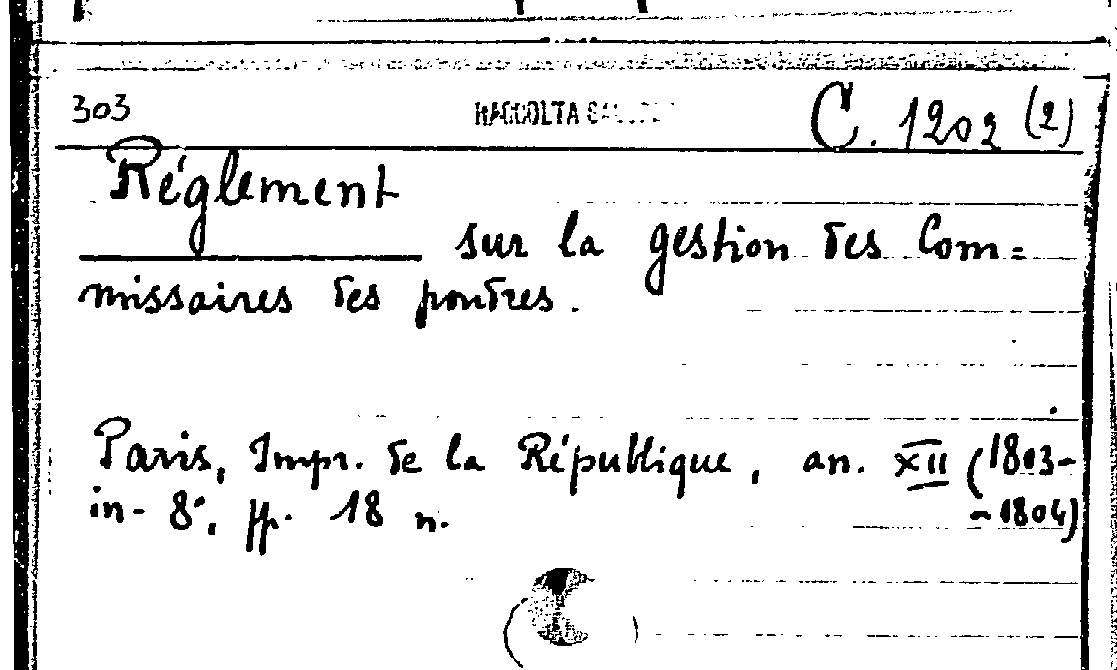 303 RACCOLTA C. 1202 (2)
Réglement
sur la gestion des Com=
missaires des poudres.
Paris, Impr. de la République, an. XII (1803-
in-8°, pp. 18 n. -1804)